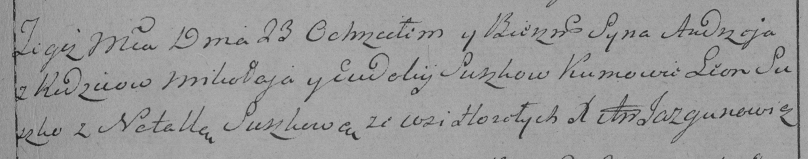 Tegoż Mca Dnia 23 Ochrzciłem y Bierzm Syna Andrzeja
z Rodzicow Mikołaja y Eudokij Suszkow Kumowie Leon Su
szko z Natalką Suszkową ze wsi Horodych X An Jazgunowicz